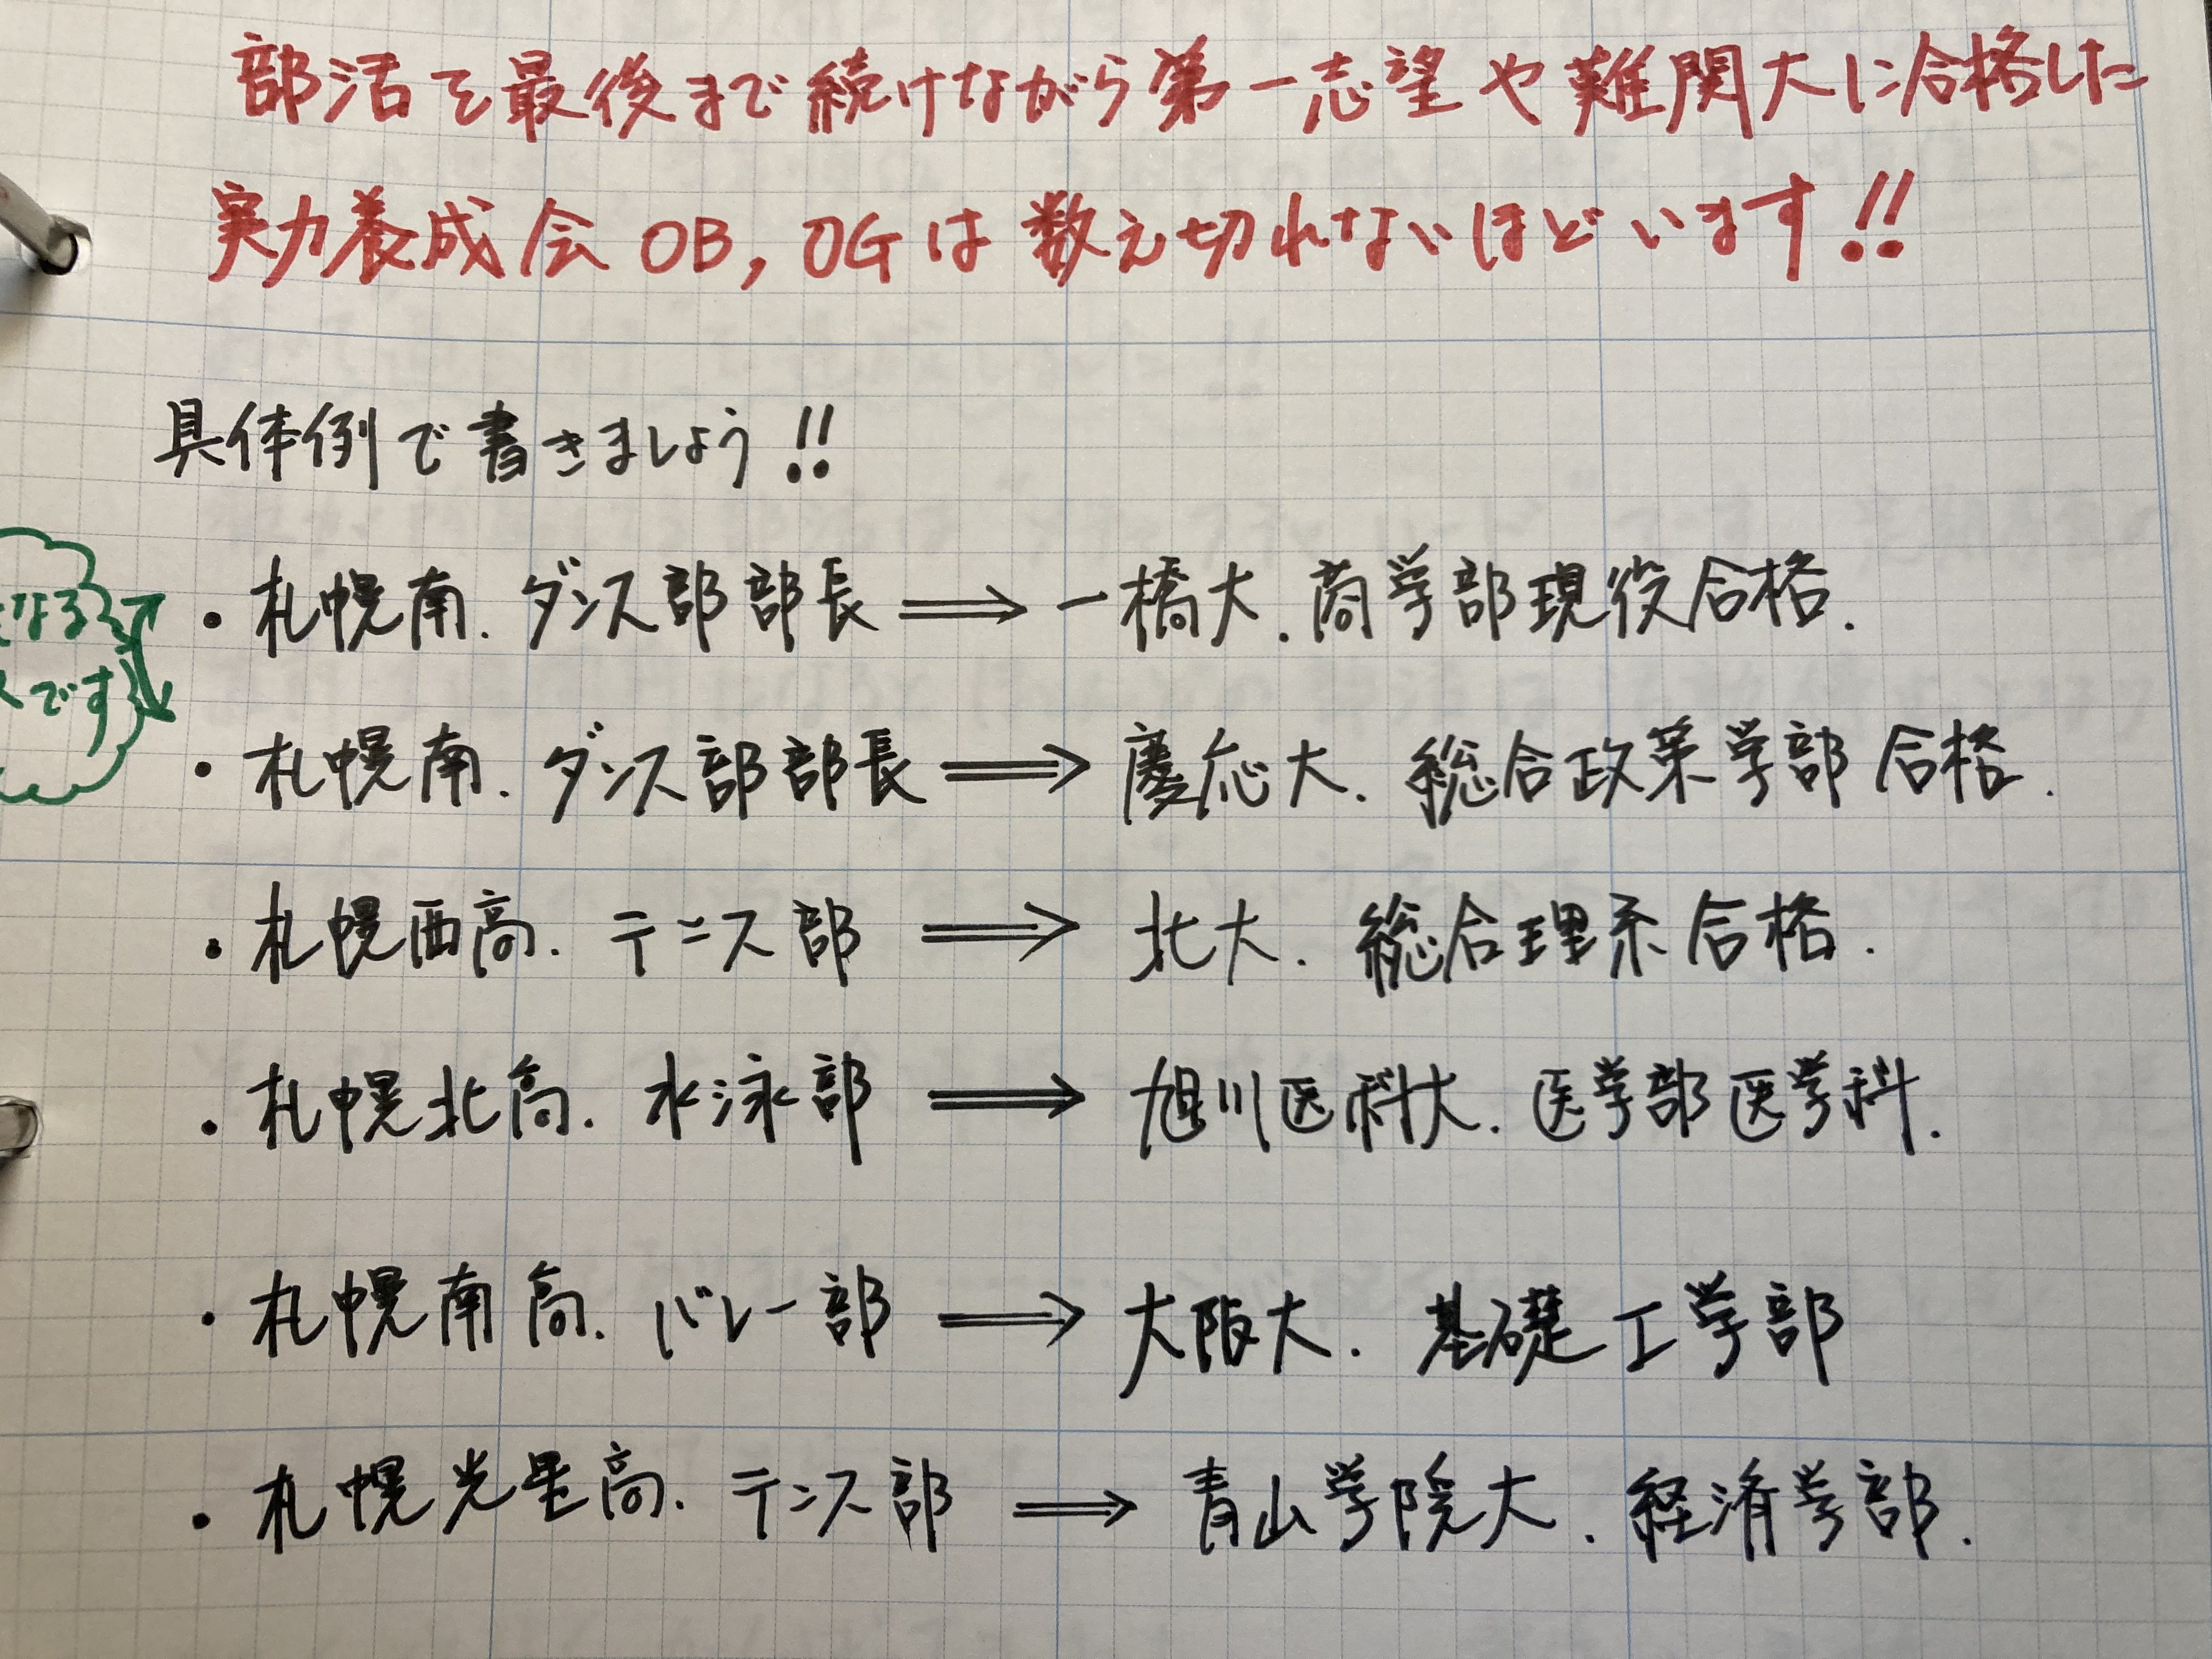 部活を最後まで続けながら第一志望や難関大に合格した
実力養成会OB,OGは数え切れないほどいます!!
具体例で書きましょう!!
・札幌南.ダンス部部長⟹一橋大.商学部現役合格.
・札幌南.ダンス部部長⟹慶応大.総合政策学部合格.
・札幌西高.テニス部⟹北大.総合理系合格.
・札幌北高.水泳部⟹旭川医科大.医学部医学科.
・札幌南高.バレー部⟹大阪大.基礎工学部
・札幌光星高.テニス部⟹青山学院大.経済学部.
なる
です